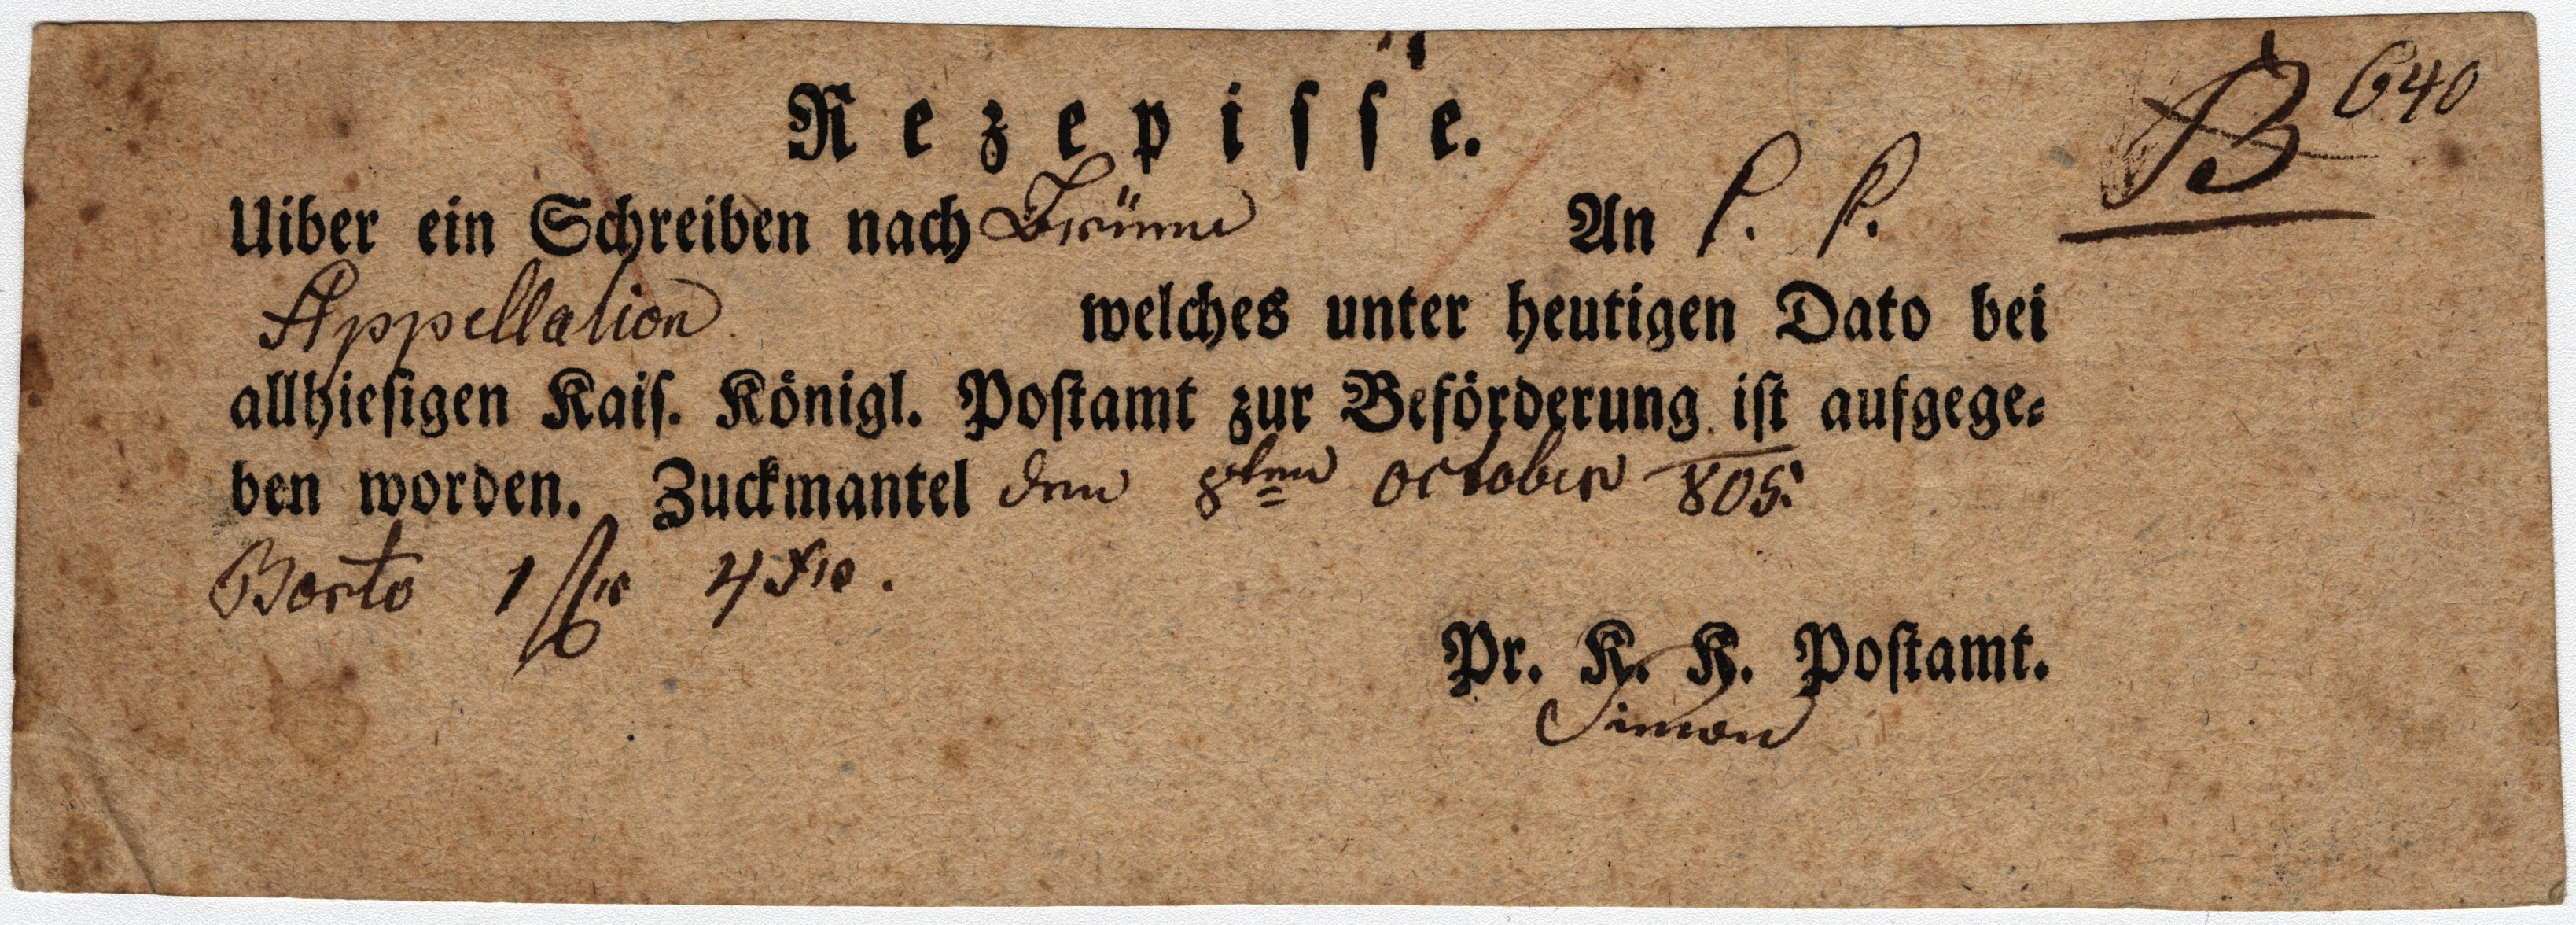 B 640
Rezepisse.
Uiber ein Schreiben nach Brünn An P. P.
Appellation welches unter heutigen Dato bei
allhiesigen Kais. Königl. Postamt zur Beförderung ist aufgege-
ben worden. Zuckmantel den 8ten october 805.
Borto 1 f 4 Xr.
Pr. K. K. Postamt.
Simon